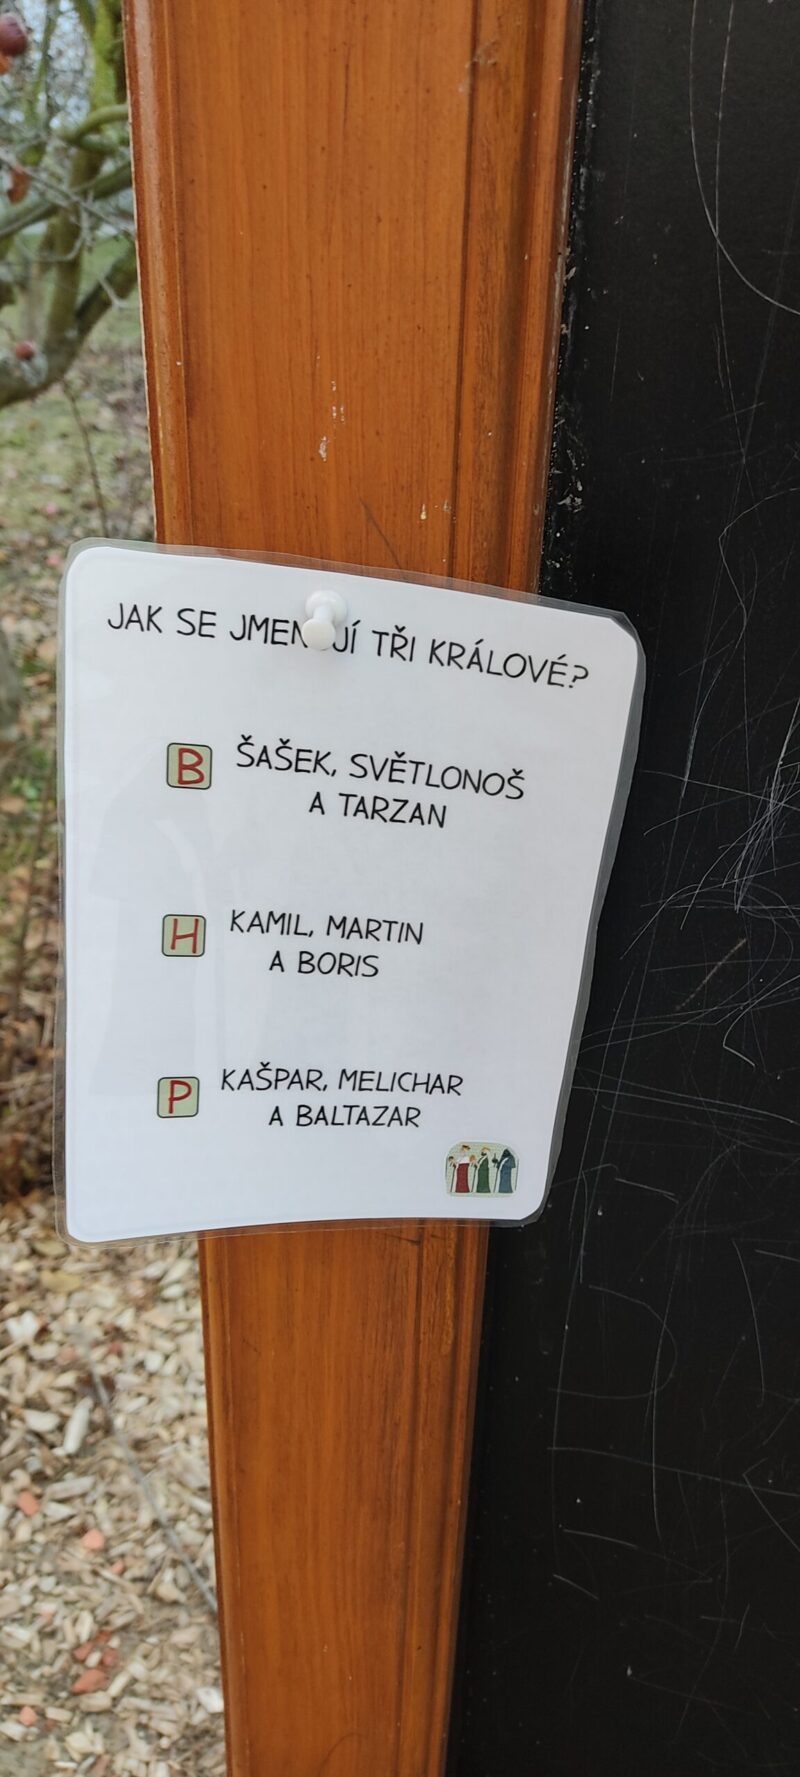 JAK SE JMENUJÍ TŘI KRÁLOVÉ?
B ŠAŠEK, SVĚTLONOŠ
A TARZAN
H KAMIL, MARTIN
A BORIS
P KAŠPAR, MELICHAR
A BALTAZAR